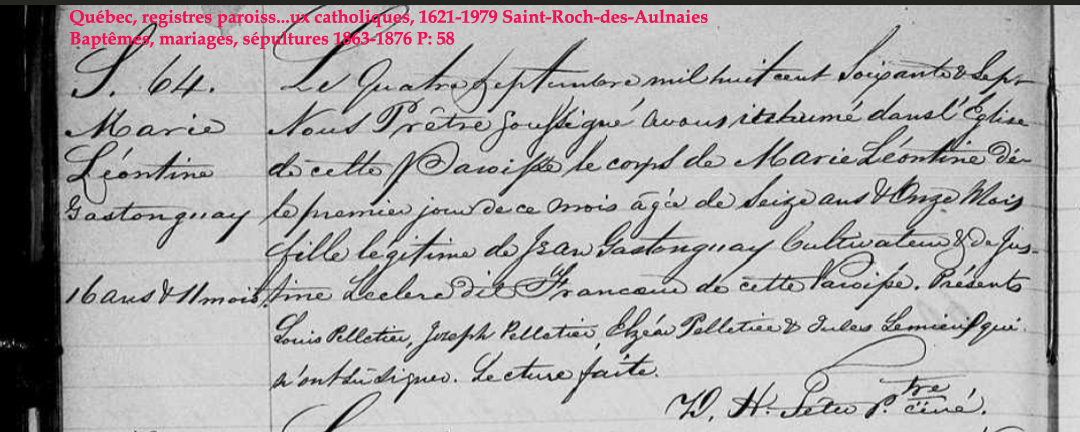 Québec, registres paroiss...ux catholiques, 1621-1979 Saint-Roch-des-Aulnaies
Baptêmes, mariages, sépultures 1863-1876 P: 58
S. 64.
Marie
Léontine
Gastonguay
16 ans & 11 mois.
Le Quatre Septembre mil huit cent Soixante & Sept
Nous Prêtre Soussigné avons inhumé dans l'Église
de cette Paroisse le corps de Marie Léontine dé-
le premier jour de ce mois âgée de Seize ans & Onze Mois
fille légitime de Jean Gastonguay Cultivateur & de Jus-
tine Leclerc dit Francoeur de cette Paroisse. Présents
Louis Pelletier, Joseph Pelletier, Elzéar Pelletier & Jules Lemieux qui
n'ont su signer. Lecture faite.
D. H. Têtu Ptre curé.